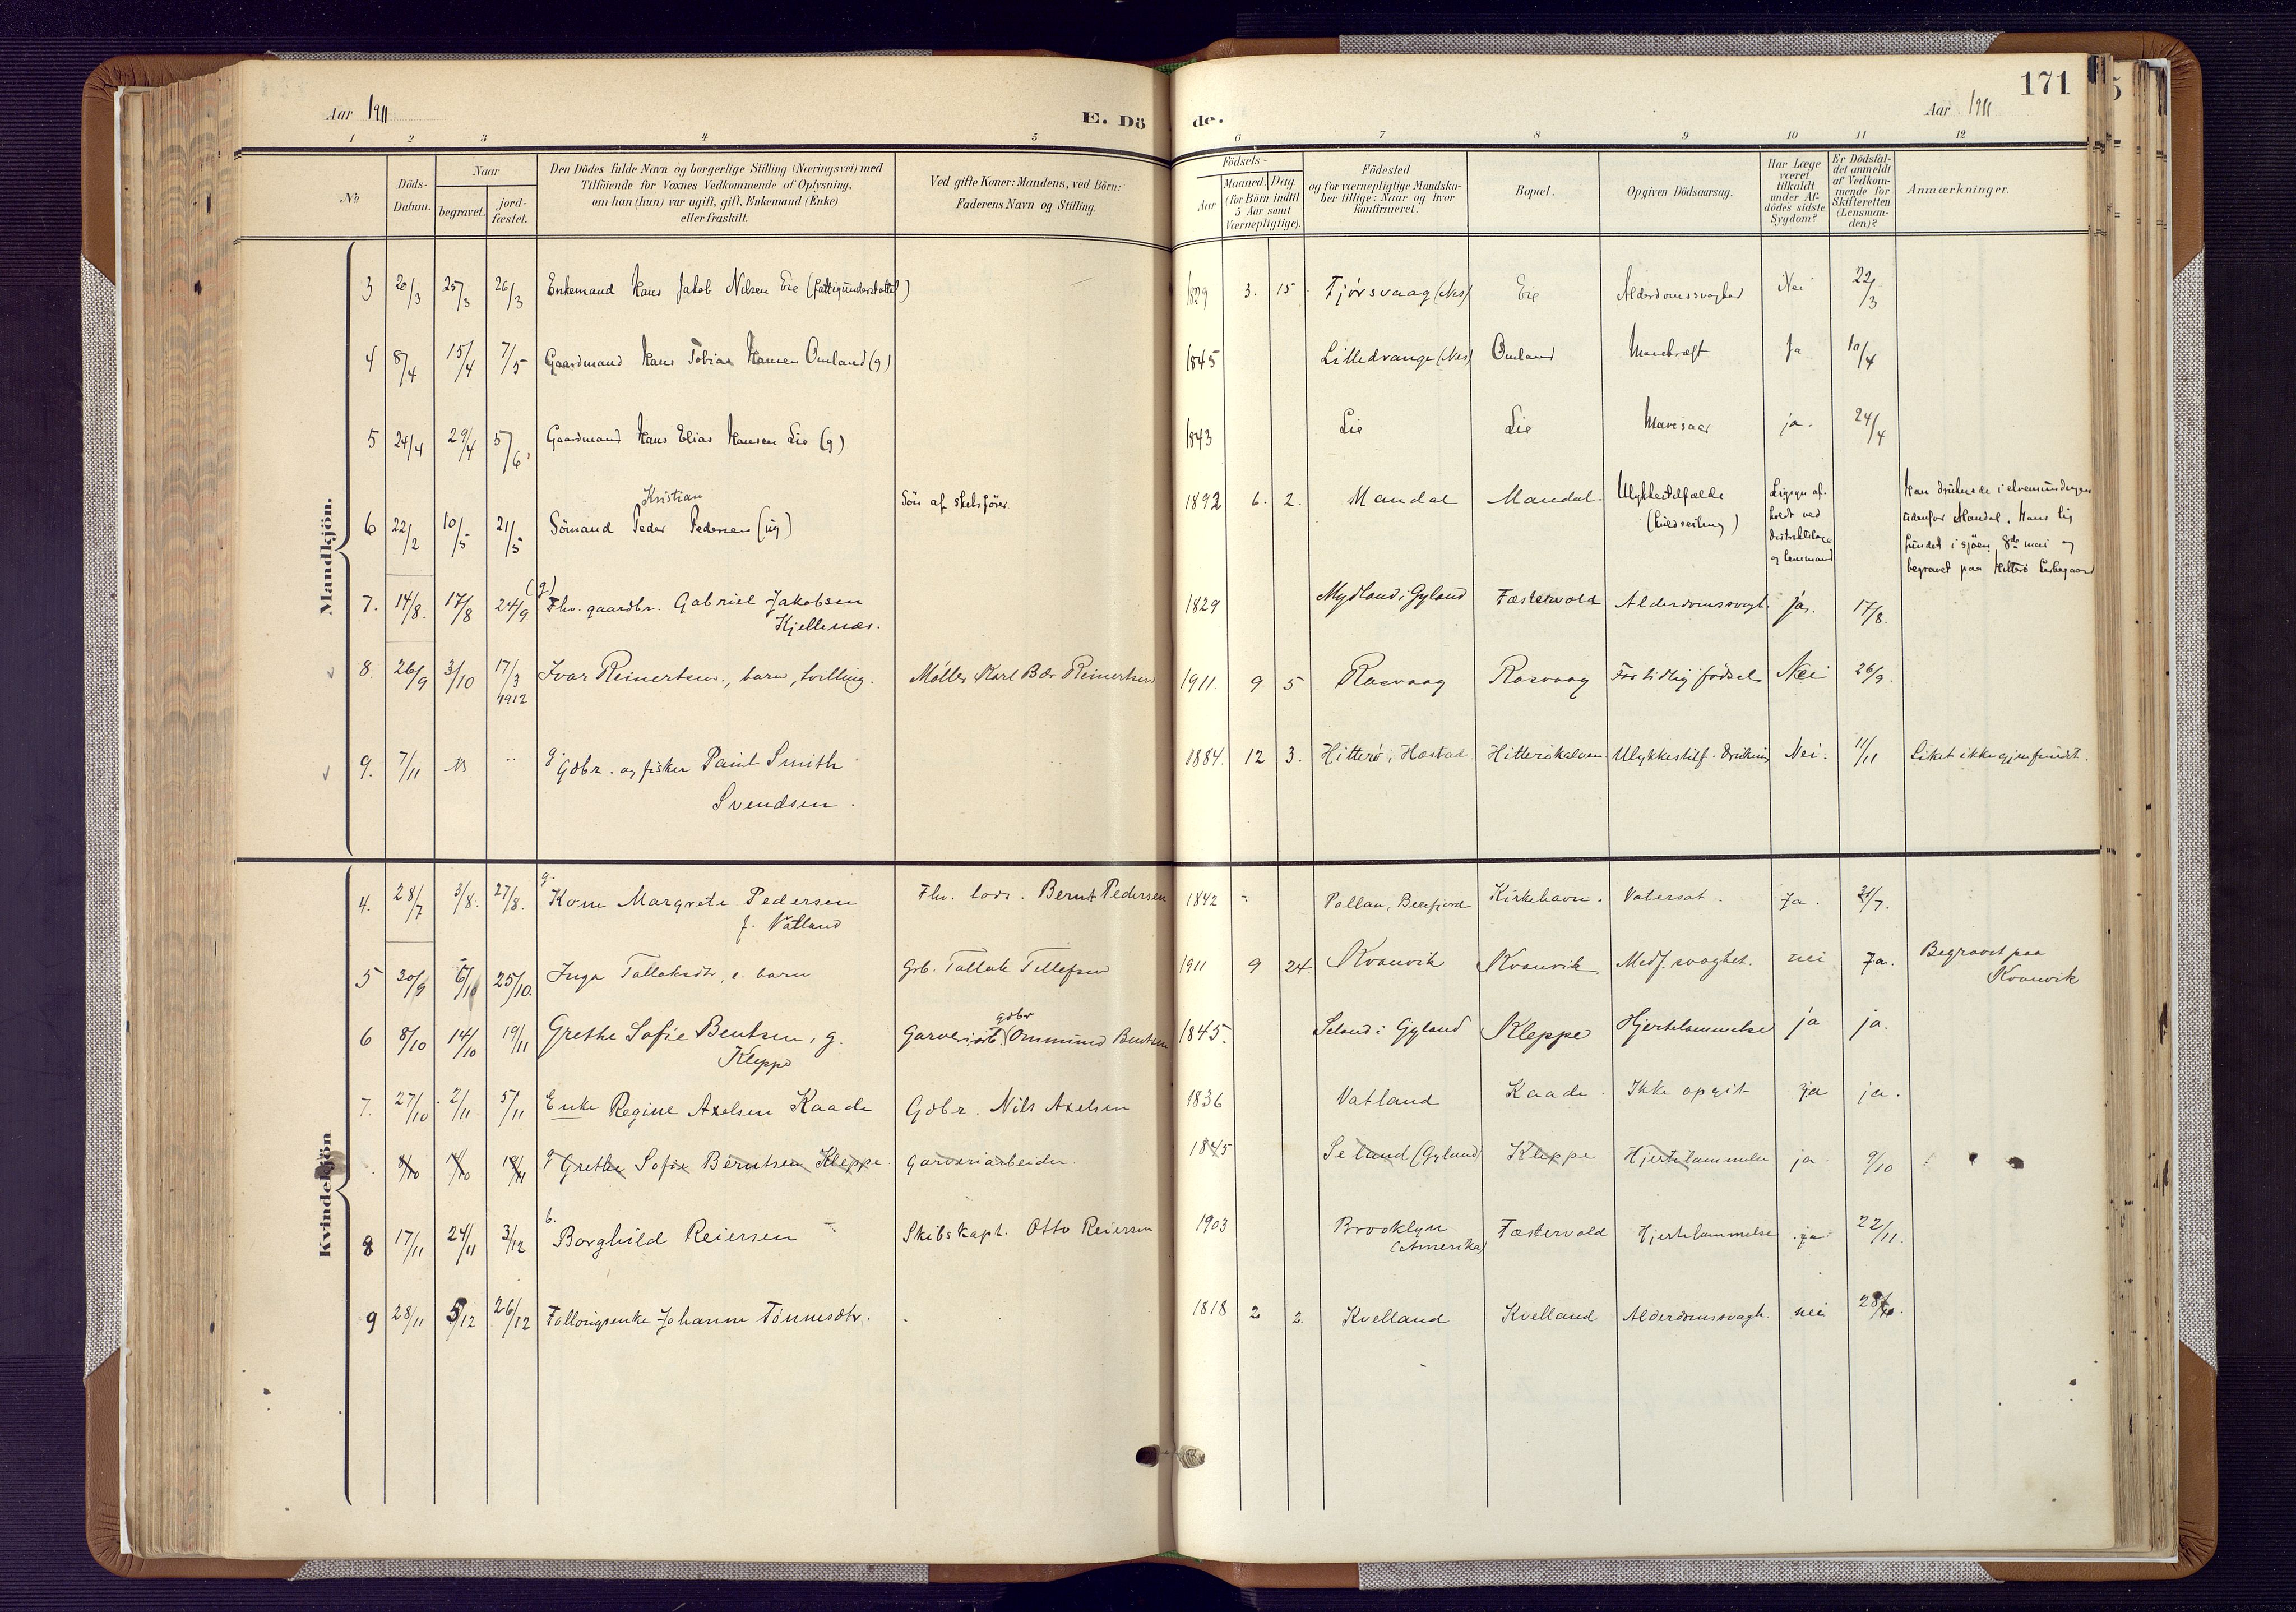 171
Aar 1911
E. Dö de.
Aar 1911
1 2 3 4 5 6 7 8 9 10 11 12
№
Döds-Datum.
Naar
begravet.
jord-fæstet.
Den Dödes fulde Navn og borgerlige Stilling (Næringsvei) med
Tilföiende for Voxnes Vedkommende af Oplysning,
om han (hun) var ugift, gift, Enkemand (Enke)
eller fraskilt.
Ved gifte Koner: Mandens, ved Börn:
Faderens Navn og Stilling.
Födsels-
Aar
Maaned. Dag.
(for Börn indtil
5 Aar samt
Værnepligtige).
Födested
og for værnepligtige Mandska-
ber tillige: Naar og hvor
konfirmeret.
Bopæl.
Opgiven Dödsaarsag.
Har Læge
været
tilkaldt
under Af-
dödes sidste
Sygdom?
Er Dödsfal-
det anmeldt
af Vedkom-
mende for
Skifteretten
(Lensman-
den)?
Anmærkninger.
Mandkjön.
3 20/3 25/3 26/3 Enkemand Hans Jakob Nilsen Eie (fattigunderstöttet) 1829 3. 15 Fjörsvaag (Nes) Eie Alderdomssvaghed Nei 22/3
4 8/4 15/4 7/5 Gaardmand Hans Tobias Hansen Omland (g) 1845 Lilledrange (Nes) Omland Ja 10/4
5 24/4 29/4 5/6 Gaardmand Hans Elias Hansen Lie (g) 1843 Lie Lie Mavesaar ja. 24/4
Kristian
6 22/2 10/5 21/5 Sömand Peder Pedersen (ug) Sön af 1892 6. 2. Mandal Mandal. Ulykkestilfælde
(kuldseiling)
Ligsyn af-
holdt ved
distriktslæge
og lensmand
Han druknede i elvemundingen
udenfor Mandal. Hans lig
fundet i sjöen 8de mai og
begravet paa Hitterö kirkegaard
7. 14/8. 17/8 24/9. (g) Fhv. gaardbr. Gabriel Jakobsen
Kjellenæs.
1829 Mydland i Gyland Fæstervold Alderdomssvagh. ja. 17/8.
8. 26/9 3/10 17/3 1912 Ivar Reinertsen, barn, tvilling. Möller Karl Bær Reinertsen 1911. 9 5 Rasvaag Rasvaag For tidlig födsel Nei 26/9.
9. 7/11 " g. Gdbr. og fisker Paul Smith
Svendsen.
1884. 12 3. Hitterö, Hæstad Hitterökalven Ulykkestilf. drukning Nei. 11/11 Liket ikke gjenfundet.
Kvindekjön
4. 28/7 3/8. 27/8. g. Kone Margrete Pedersen
f. Vatland
Fhv. lods. Bernt Pedersen 1842 Kirkehavn. Vatersot. Ja. 31/7.
5 30/9 6/10 25/10. Inga Tallaksdtr, e. barn Grb. Tallak Tellefsen 1911 9 24. Kvanvik Kvanvik Medf. svaghet. nei Ja. Begravet paa
Kvanvik
6 8/10 14/10 19/11 Grethe Sofie Bentsen, g.
Kleppe
Garveriarb. gdbr Ommund Bentsen 1845. Seland i Gyland Kleppe Hjertelammelse ja ja.
7. 27/10 2/11 5/11 Enke Regine Axelsen Kaade Gdbr. Nils Axelsen 1836 Vatland Kaade. Ikke opgit ja ja.
8/10 14/10 19/11 g Grethe Sofie Berntsen Kleppe. Garveriarbeider. 1845 Seland (Gyland) Kleppe Hjertelammelse ja. 9/10
8 17/11 24/11 3/12 b. Borghild Reiersen Skibskapt. Otto Reiersen 1903 Brooklyn
(Amerika)
Fæstervold Hjertelammelse ja 22/11.
9 28/11 5/12 26/12 Fattiglemsenke Johanne Tönnesdtr. 1818 2 2. Kvelland Kvelland Alderdomssvagh. nei